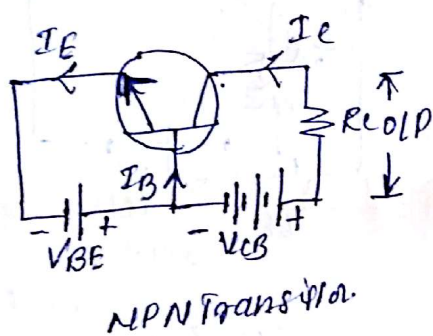 IE
Ic
RL O/P
IB
- + - +
VBE
VCB
NPN Transistor.